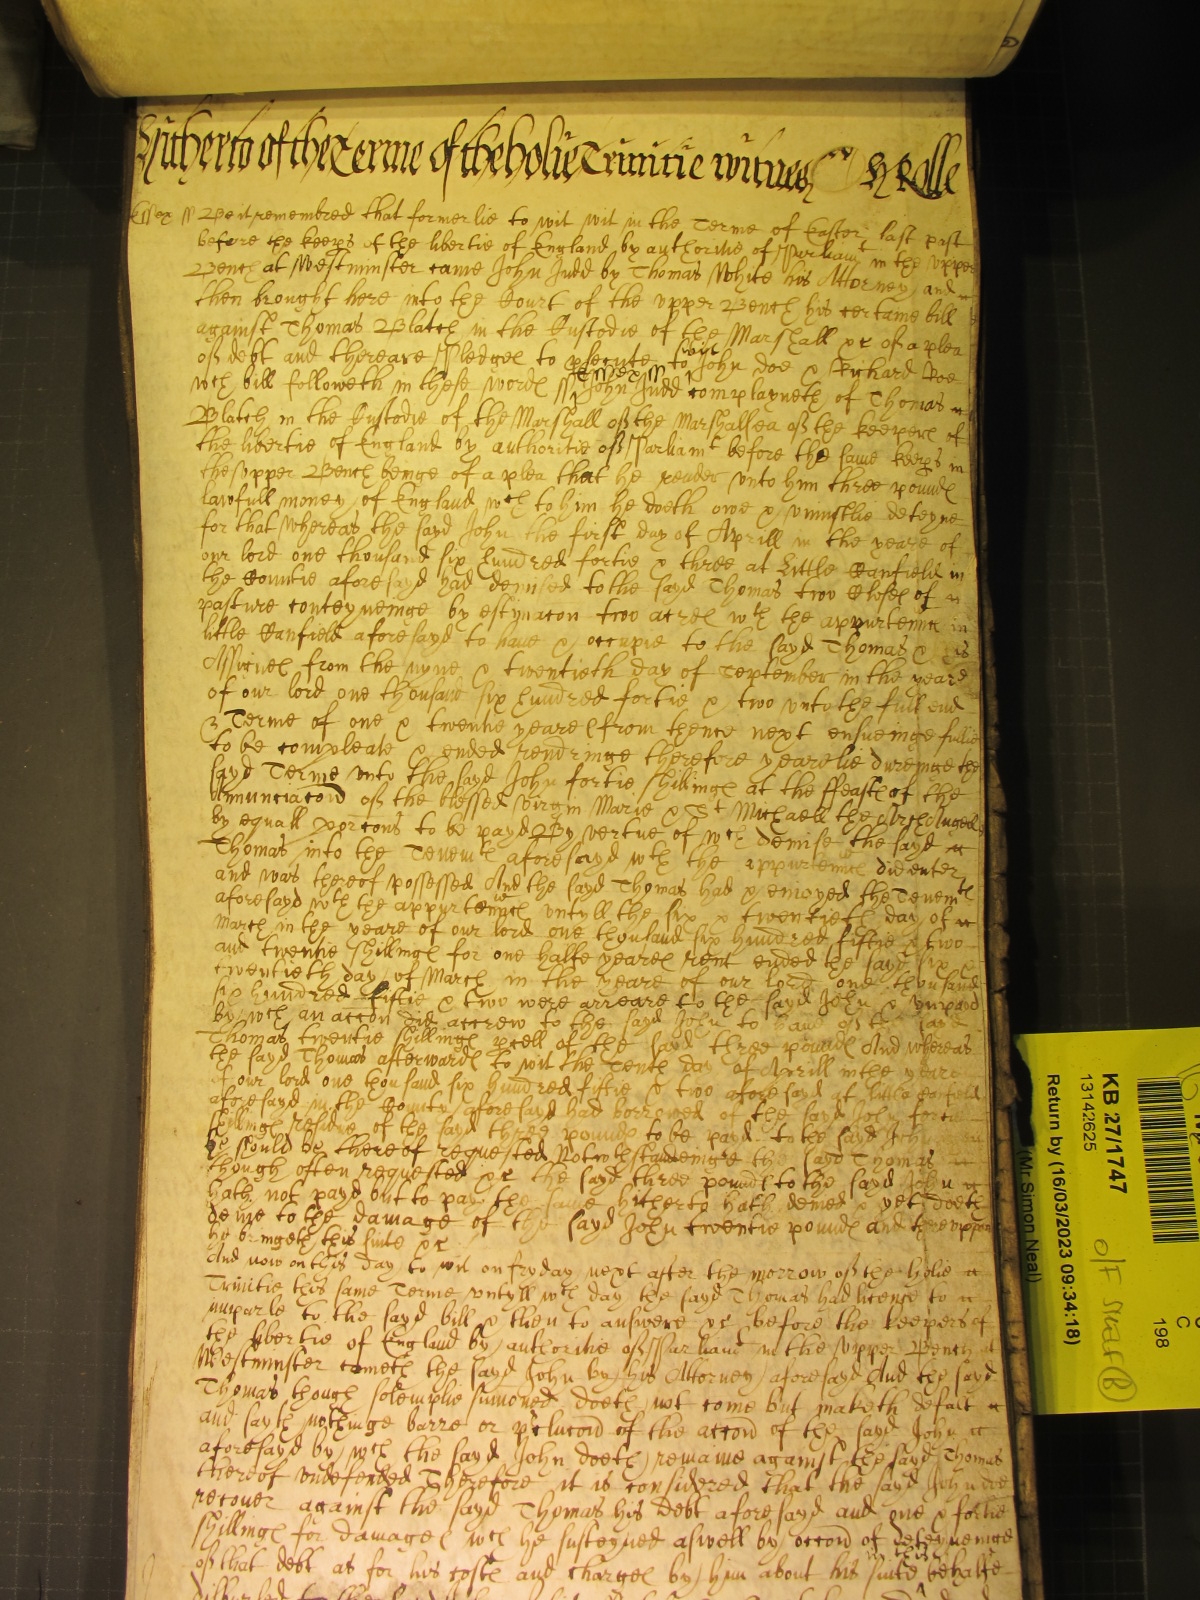 Hitherto of the Terme of the holie Trinitie witnes H Rolle
Essex ss Be it remembred that formerlie to wit wit in the Terme of Easter last past
before the keeps of the libertie of England by authoritie of Parliamt in the upper
Bench at Westminster came John Judd by Thomas White his Attorney and
then brought here into the Court of the upper Bench his certaine bill
against Thomas Blatch in the Custodie of the Marshall &c of a plea
of debt and there are Pledges to psecute to wit John Doe & Richard Roe
wch bill followeth in these words ss Essex ss John Judd complayneth of Thomas
Blatch in the Custodie of the Marshall of the Marshalsea of the keepers of
the libertie of England by authoritie of Parliamt before the same keeps in
the upper Bench beinge of a plea that he render unto him three pounds
lawfull money of England wch to him he doeth owe & uniustlie deteyne
for that whereas the sayd John the first day of Aprill in the yeare of
our lord one thousand six hundred fortie & three at Little Canfield in
the Countie aforesayd had demised to the sayd Thomas two Closes of
pasture conteyneinge by estimacon two acres wth the appurtennces in
little Canfield aforesayd to have & occupie to the sayd Thomas & his
Assignes from the nyne & twentieth day of September in the yeare
of our lord one thousand six hundred fortie & two unto the full end
& Terme of one & twentie yeares from thence next ensueinge fullie
to be compleate & ended rendringe therefore yearelie dureinge the
sayd Terme unto the sayd John fortie shillings at the ffeasts of the
Annunciacon of the blessed virgin Marie & St Michaell the Archangell
by equall porcons to be payd By vertue of wch demise the sayd
Thomas into the Tenemts aforesayd wth the appurtennces did enter
and was thereof possessed And the sayd Thomas had & enioyed the Tenemts
aforesayd wth the appurtennces untyll the six & twentieth day of
March in the yeare of our lord one thousand six hundred fiftie & two
and twentie shillings for one halfe yeares rent ended the sayd six &
twentieth day of March in the yeare of our lord one thousand
six hundred fiftie & two were arreare to the sayd John & unpayd
by wch an accon did accrew to the sayd John to have of the sayd
Thomas twentie shillings pcell of the sayd three pounds And whereas
the sayd Thomas afterwards to wit the Tenth day of Aprill in the yeare
of our lord one thousand six hundred fiftie & two aforesayd at little Canfield
aforesayd in the County aforesayd had borrowed of the sayd John fortie
shillings residue of the sayd three pounds to be payd to the sayd John
he should be thereof requested Notwthstandeinge the sayd Thomas
though often requested &c the sayd three pounds to the sayd John
hath not payd but to pay the same hitherto hath denied & yet doeth
denie to the damage of the sayd John twentie pounds and thereuppon
he bringeth this suite &c
And now on this day to wit on fryday next after the morrow of the holie
Trinitie this same Terme untyll wch day the sayd Thomas had licence to
imparle to the sayd bill & then to answere &c before the keepers of
the libertie of England by authoritie of Parliamt in the upper Bench at
Westminster cometh the sayd John by his Attorney aforesayd And the sayd
Thomas though solemplie sumoned doeth not come but maketh default
and sayth nothinge in barre or pclucon of the accon of the sayd John
aforesayd by wch the sayd John doeth remaine against the sayd Thomas
thereof undefended Therefore it is considered that the sayd John doe
recover against the sayd Thomas his debt aforesayd and one & fortie
shillings for damages wch he susteyned aswell by occon of deteyneinge
of that debt as for his costs and charges by him about his suite in this behalfe
KB 27/1747
13142625
Return by (16/03/2023 09:34:18)
(Mr Simon Neal)
C
198